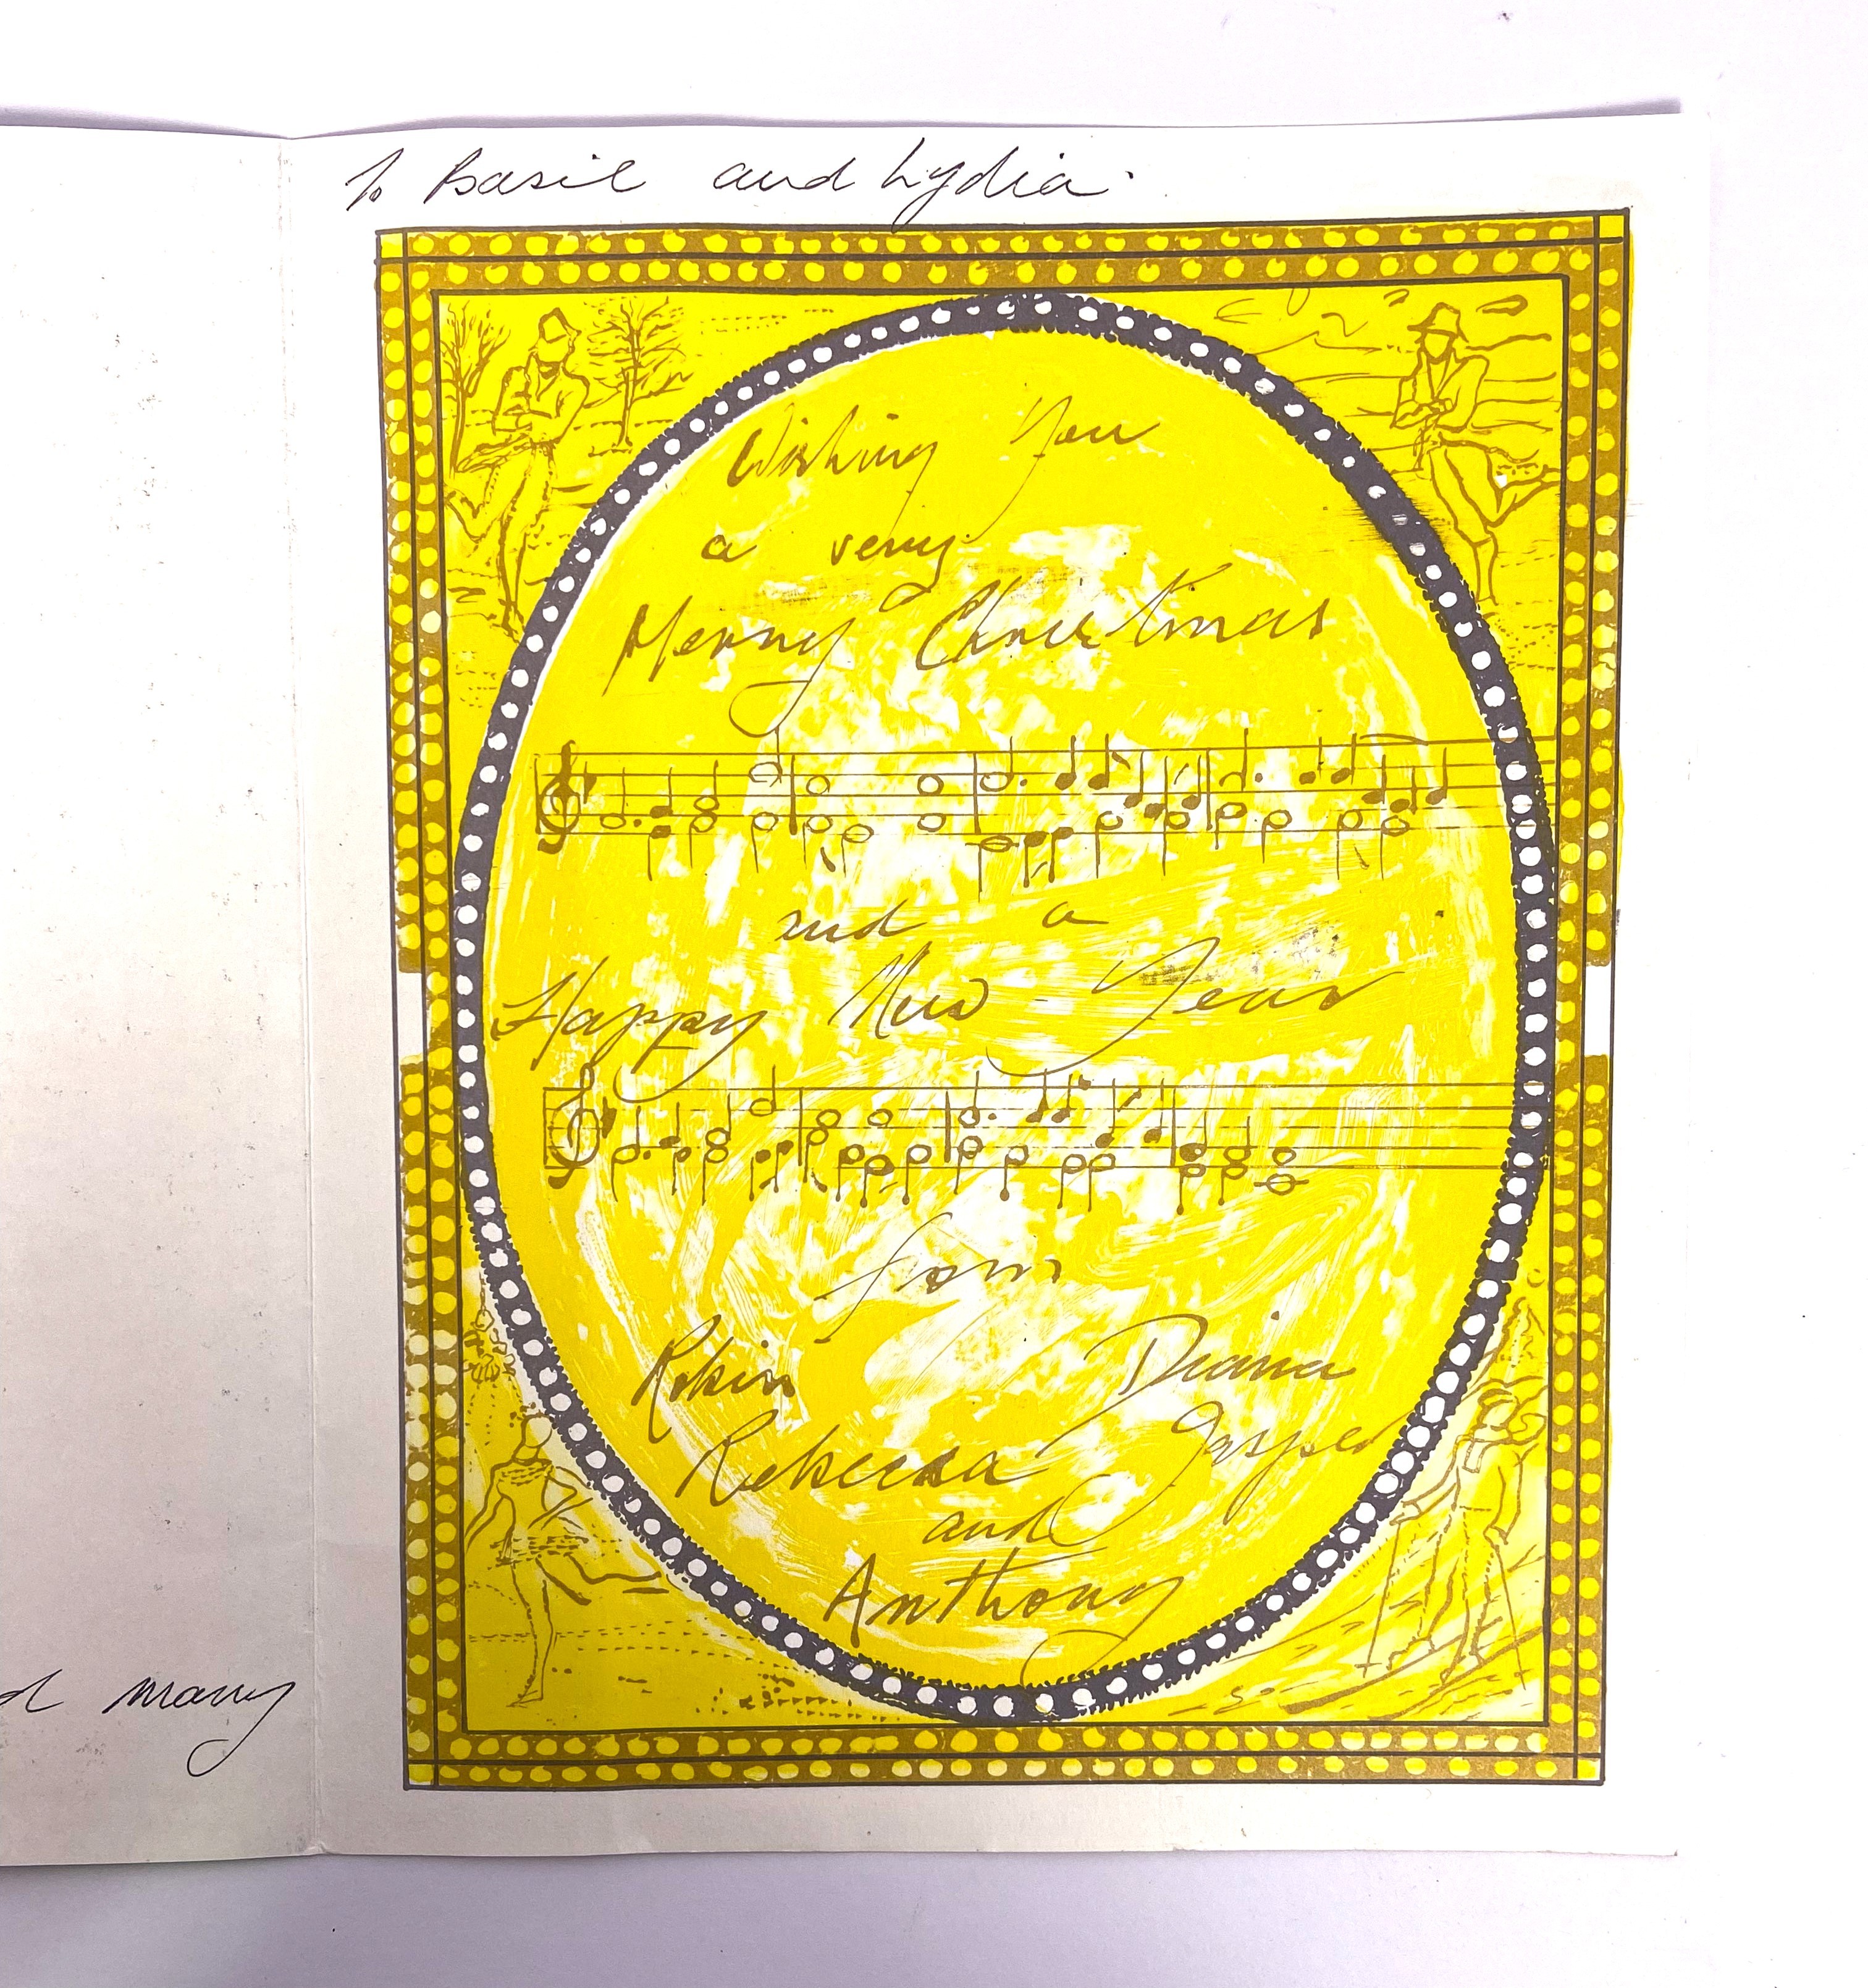 To Basil and Lydia.
Wishing You
a very
Merry Christmas
and a
Happy New Year
from
Robin Diana
Rebecca Jasper
and
Anthony
many